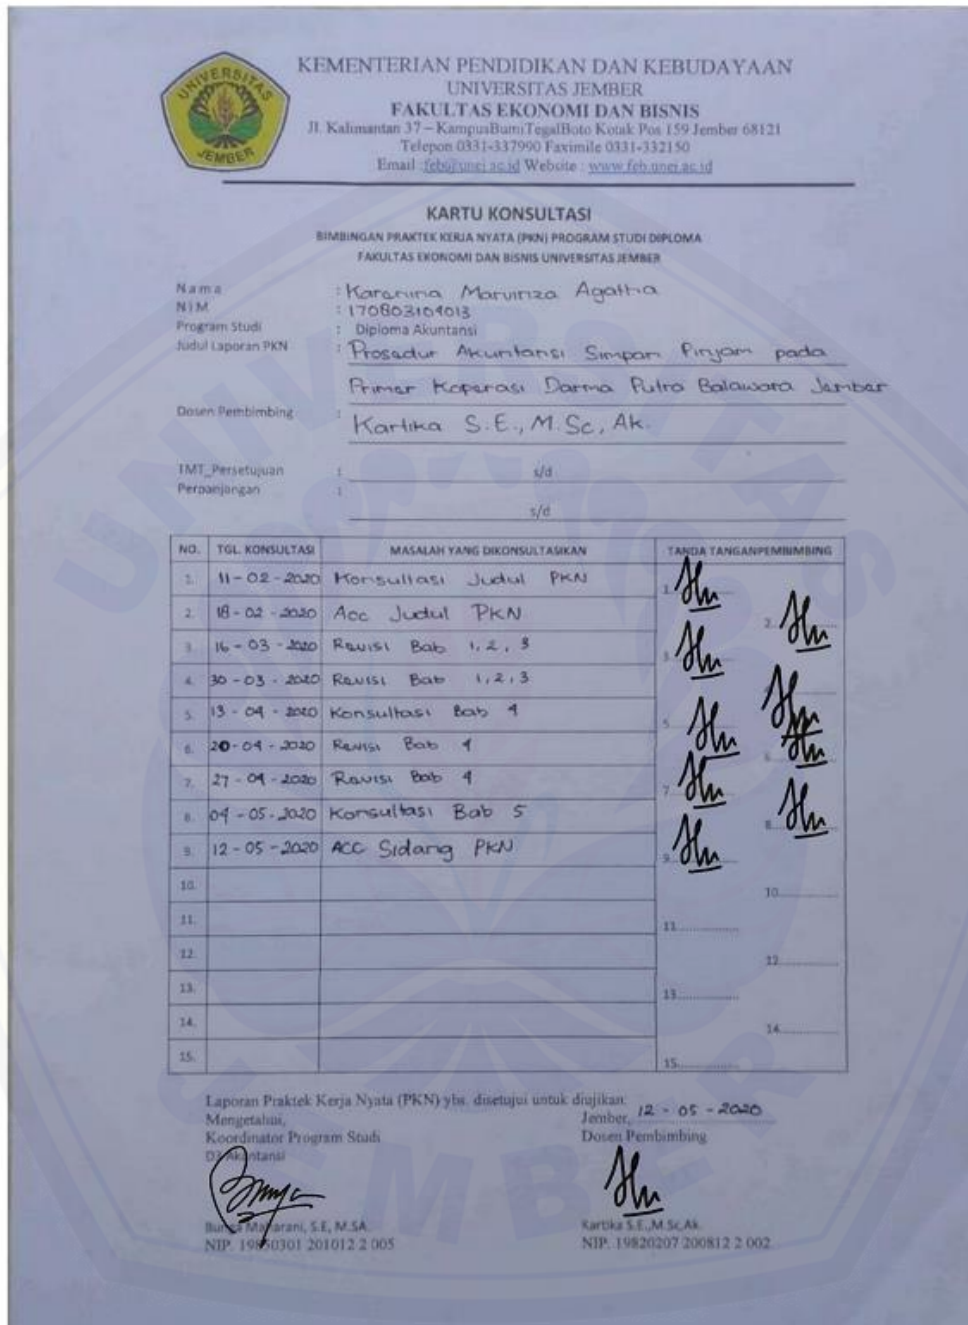 UNIVERSITAS
JEMBER
KEMENTERIAN PENDIDIKAN DAN KEBUDAYAAN
UNIVERSITAS JEMBER
FAKULTAS EKONOMI DAN BISNIS
Jl. Kalimantan 37 – KampusBumiTegalBoto Kotak Pos 159 Jember 68121
Telepon 0331-337990 Faximile 0331-332150
Email : feb@unej.ac.id Website : www.feb.unej.ac.id
KARTU KONSULTASI
BIMBINGAN PRAKTEK KERJA NYATA (PKN) PROGRAM STUDI DIPLOMA
FAKULTAS EKONOMI DAN BISNIS UNIVERSITAS JEMBER
Nama : Karanina Marvinza Agathia
NIM : 170803104013
Program Studi : Diploma Akuntansi
Judul Laporan PKN : Prosedur Akuntansi Simpan Pinjam pada
Primer Koperasi Darma Putra Balawara Jember
Dosen Pembimbing : Kartika S.E., M.Sc, Ak.
TMT_Persetujuan : s/d
Perpanjangan :
s/d
NO. TGL. KONSULTASI MASALAH YANG DIKONSULTASIKAN TANDA TANGANPEMBIMBING
1. 11-02-2020 Konsultasi Judul PKN 1.
2. 18-02-2020 Acc Judul PKN 2.
3. 16-03-2020 Revisi Bab 1, 2, 3 3.
4. 30-03-2020 Revisi Bab 1,2,3
5. 13-04-2020 Konsultasi Bab 4 5.
6. 20-04-2020 Revisi Bab 4 6.
7. 27-04-2020 Revisi Bab 4 7.
8. 04-05-2020 Konsultasi Bab 5 8.
9. 12-05-2020 ACC Sidang PKN 9.
10. 10..................
11. 11..................
12. 12..................
13. 13..................
14. 14..................
15. 15..................
Laporan Praktek Kerja Nyata (PKN) ybs. disetujui untuk diujikan:
Mengetahui, Jember, 12-05-2020
Koordinator Program Studi Dosen Pembimbing
D3 Akuntansi
Bunga Maharani, S.E, M.SA. Kartika S.E.,M.Sc,Ak.
NIP. 19850301 201012 2 005 NIP. 19820207 200812 2 002